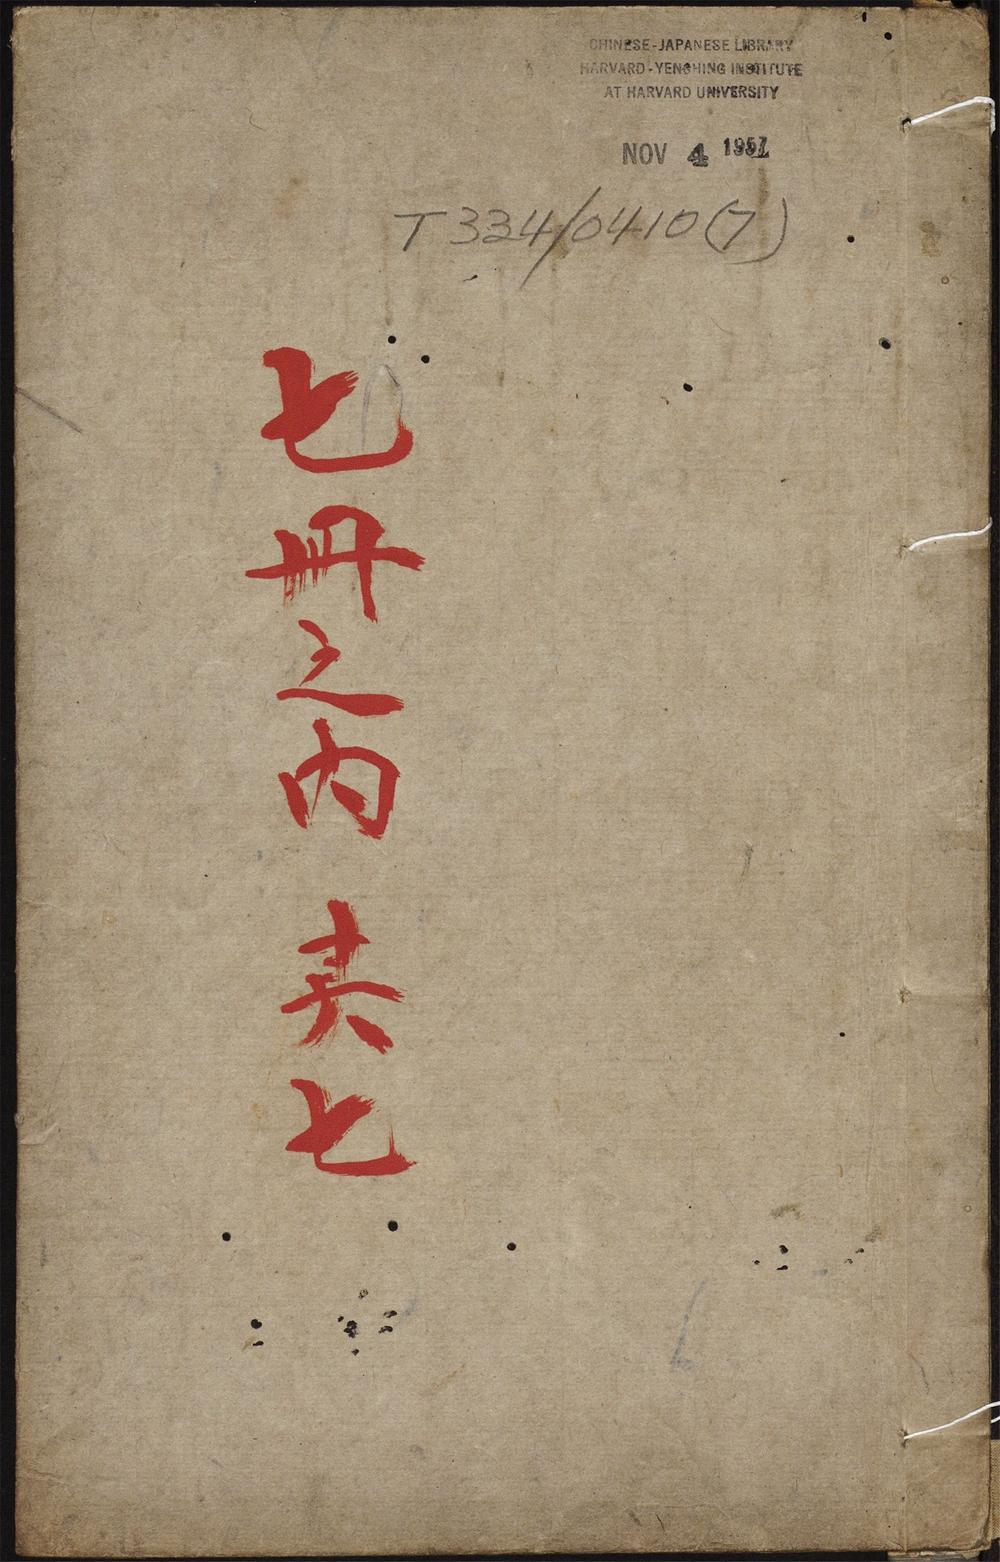 CHINESE-JAPANESE LIBRARY
HARVARD-YENCHING INSTITUTE
AT HARVARD UNIVERSITY
NOV 4 1957
T 334/0410(7)
七冊之内 其七